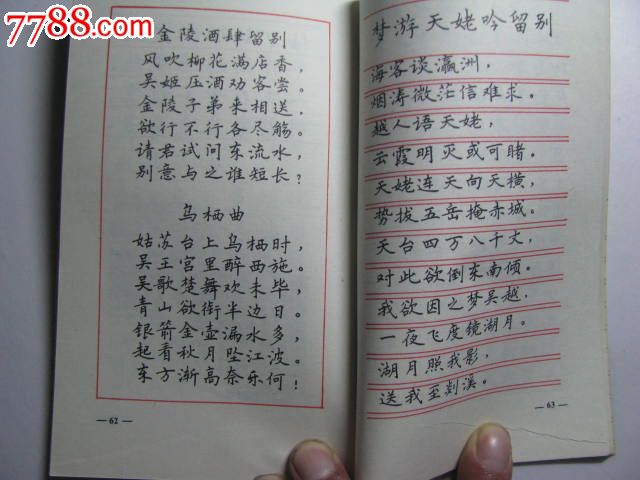 7788.com
中国收藏热线
金陵酒肆留别
风吹柳花满店香，
吴姬压酒劝客尝。
金陵子弟来相送，
欲行不行各尽觞。
请君试问东流水，
别意与之谁短长？
乌栖曲
姑苏台上乌栖时，
吴王宫里醉西施。
吴歌楚舞欢未毕，
青山欲衔半边日。
银箭金壶漏水多，
起看秋月坠江波。
东方渐高奈乐何！
— 62 —
梦游天姥吟留别
海客谈瀛洲，
烟涛微茫信难求。
越人语天姥，
云霞明灭或可睹。
天姥连天向天横，
势拔五岳掩赤城。
天台四万八千丈，
对此欲倒东南倾。
我欲因之梦吴越，
一夜飞度镜湖月。
湖月照我影，
送我至剡溪。
— 63 —